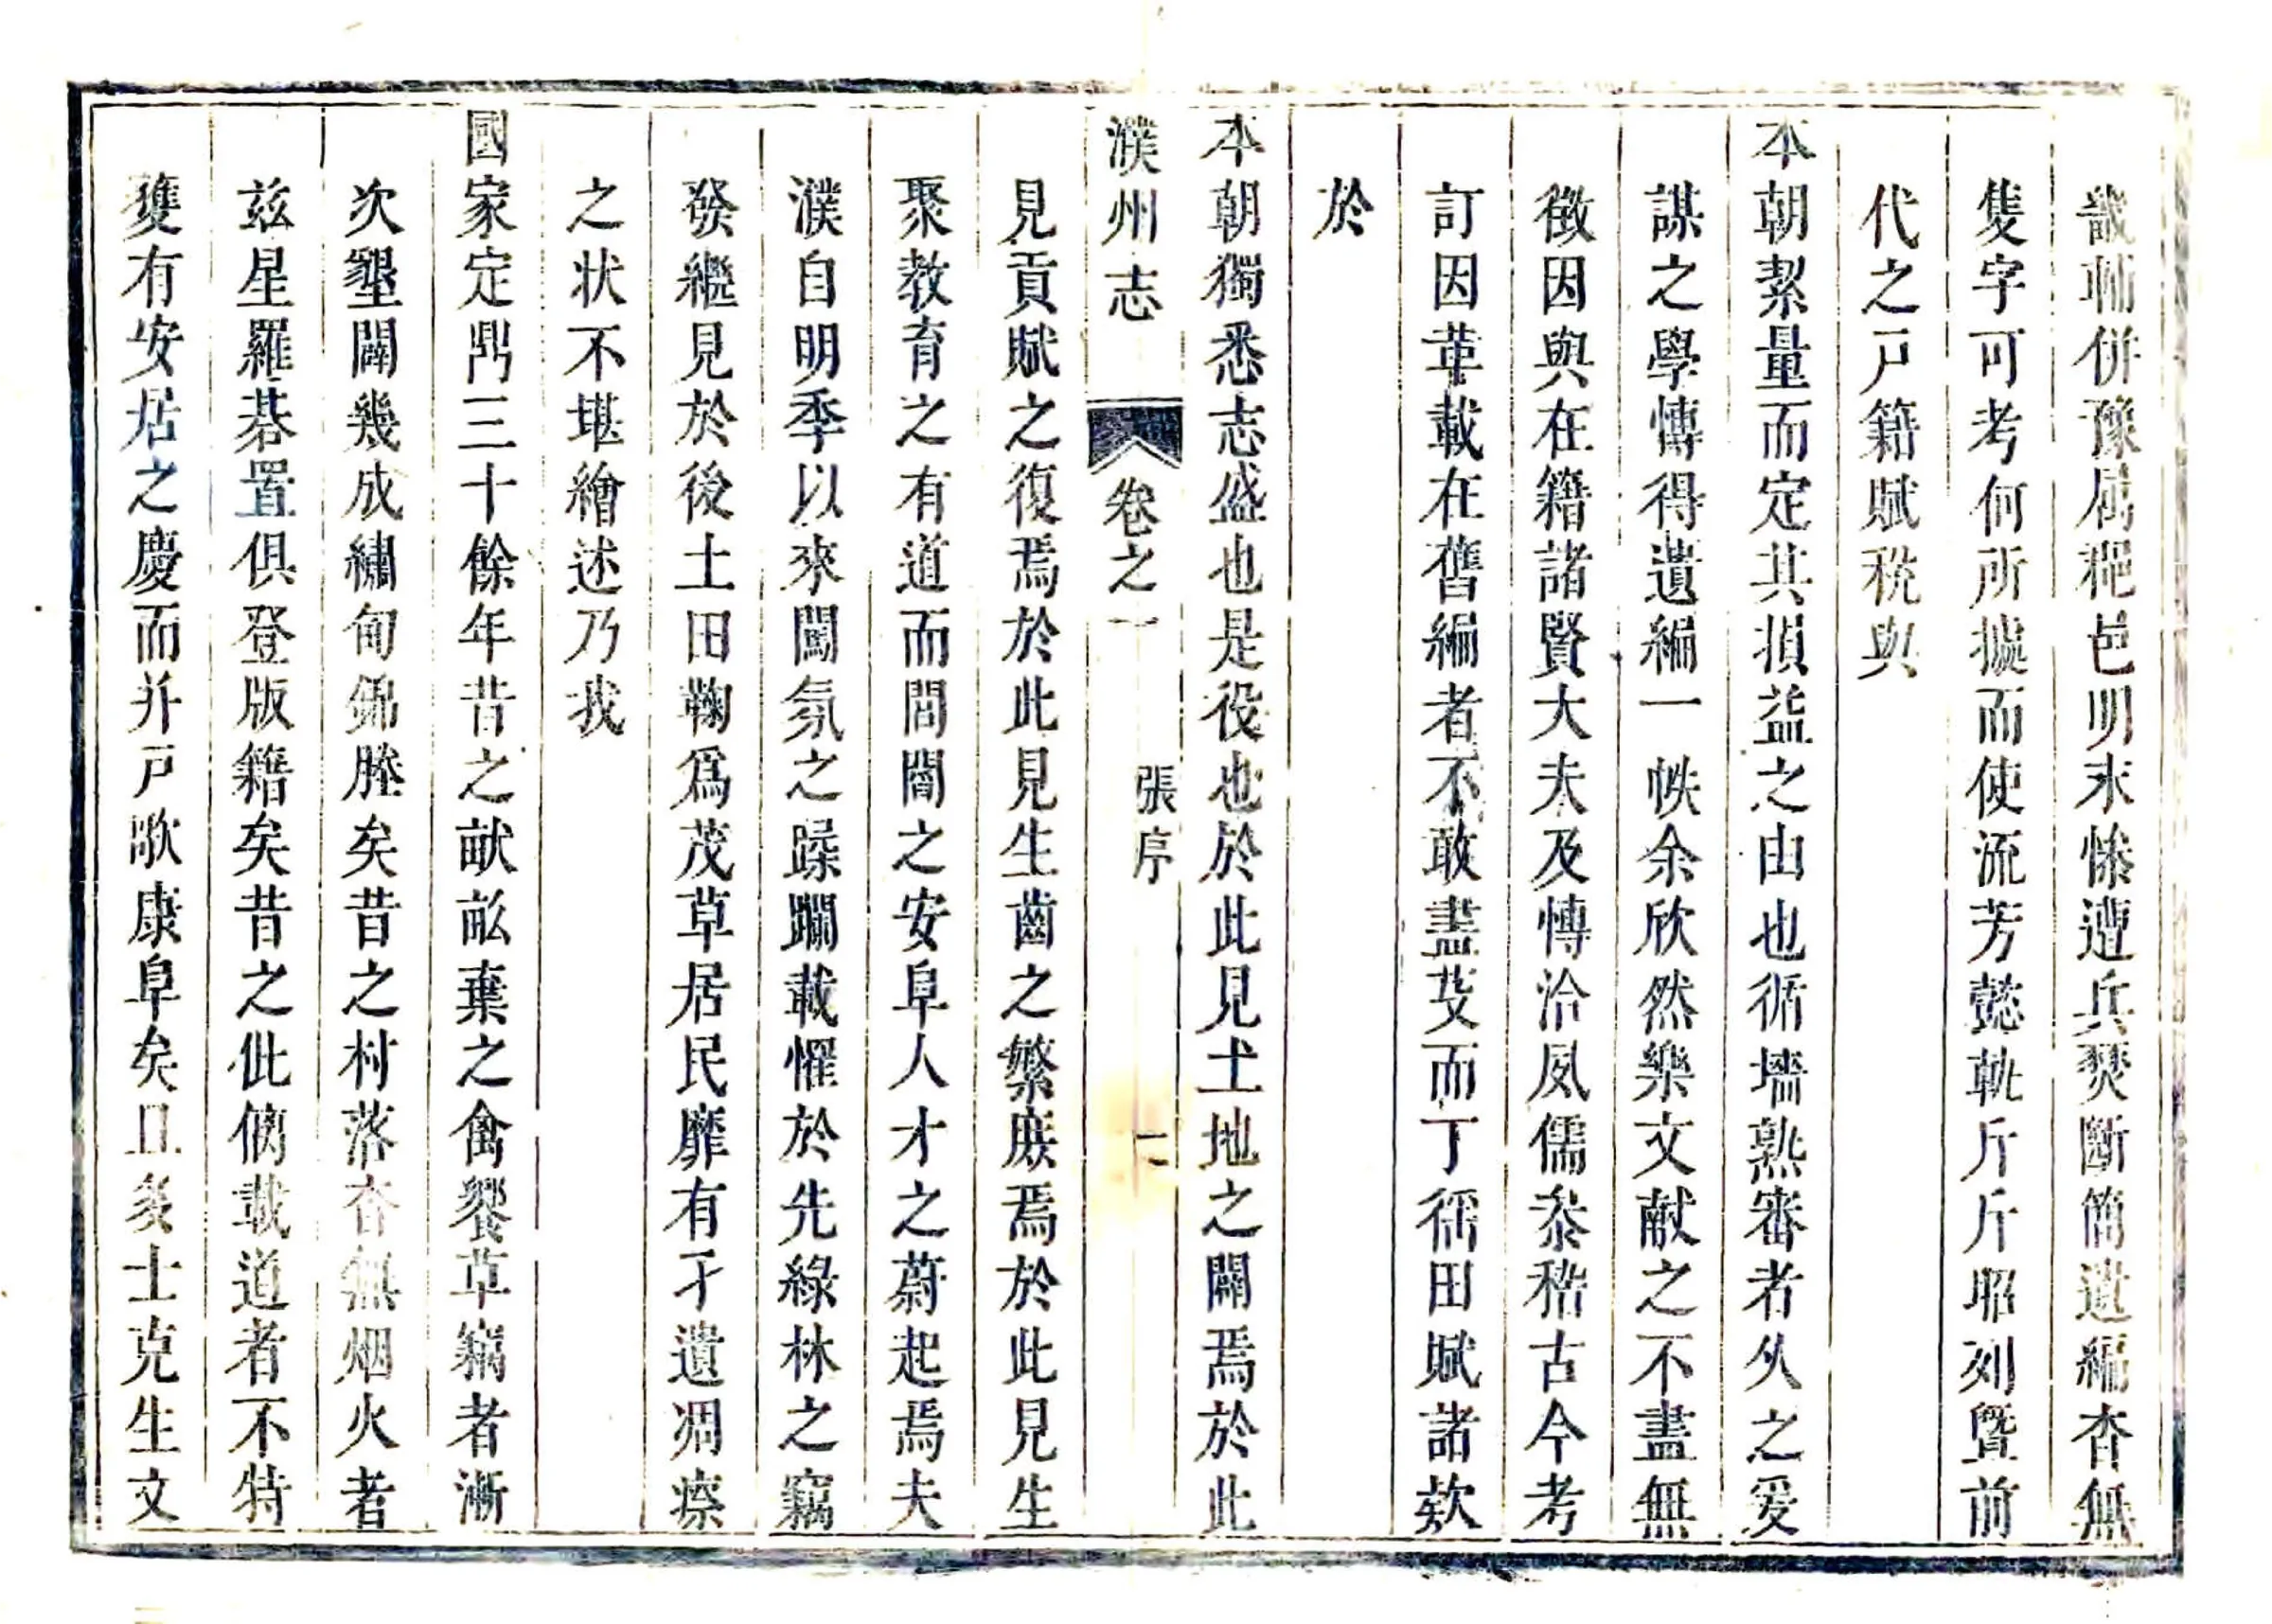 畿輔併豫屬耙邑明末慘遭兵燹斷簡遺編杳無
隻字可考何所據而使流芳懿軌斤斤昭列曁前
代之戸籍賦税與
本朝絜量而定其損益之由也循墻熟審者久之爰
謀之學博得遺編一帙余欣然樂文献之不盡無
徴因與在籍諸賢大夫及博洽夙儒叅稽古今考
訂因革載在舊編者不敢盡芟而丁徭田賦諸欵
於
本朝獨悉志盛也是役也於此見土地之闢焉於此
濮州志 卷之一 張序 二
見貢賦之復焉於此見生齒之繁庶焉於此見生
聚教育之有道而閭閻之安阜人才之蔚起焉夫
濮自明季以來闖氛之蹂躙載懼於先綠林之竊
發繼見於後土田鞠爲茂草居民靡有孑遺凋瘵
之状不堪繪述乃我
國家定鼎三十餘年昔之畎畝棄之禽饗草竊者漸
次墾闢幾成繡甸錦塍矣昔之村落杳無烟火者
兹星羅碁置俱登版籍矣昔之仳㒧載道者不特
獲有安居之慶而并戸歌康阜矣且多士克生文